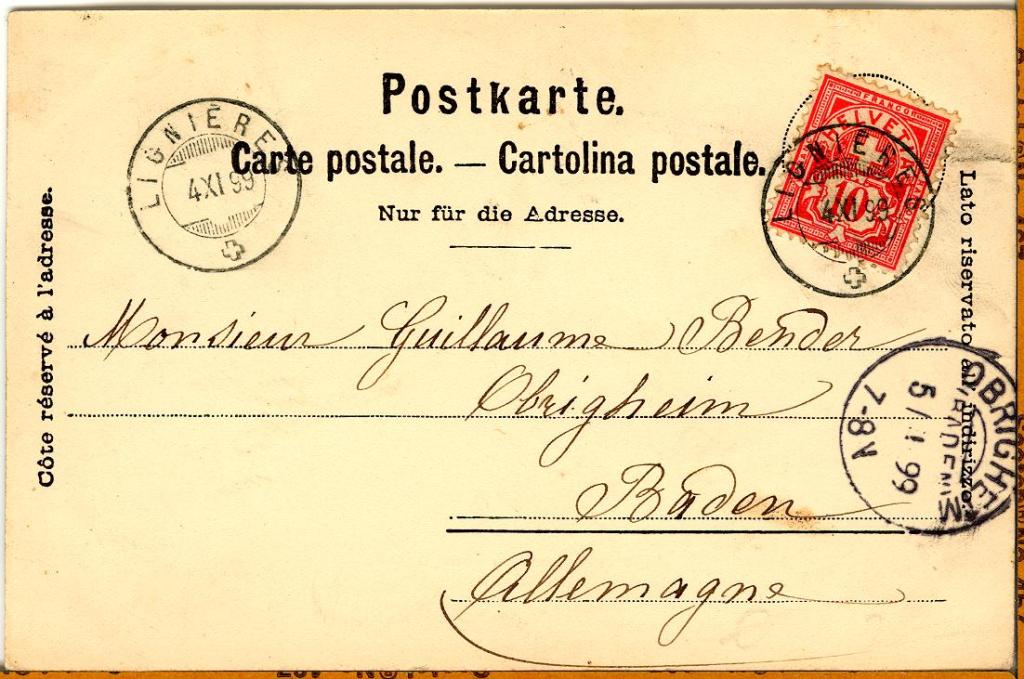 Postkarte.
Carte postale. — Cartolina postale.
Nur für die Adresse.
Côte réservé à l'adresse.
Lato riservato all'indirizzo.
LIGNIÈRE
4 XI 99
FRANCO
HELVETIA
10
LIGNIÈRES
4 XI 99
Monsieur Guillaume Bender
Obrigheim
Baden
Allemagne
OBRIGHEIM
BADEN
99
7-8V